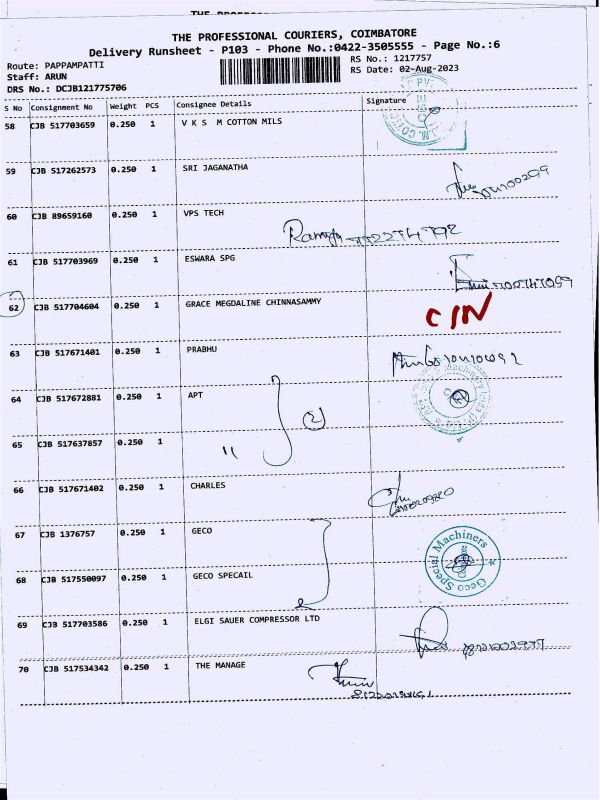 THE PROFESSIONAL COURIERS, COIMBATORE
Delivery Runsheet - P103 - Phone No.:0422-3505555 - Page No.:6
Route: PAPPAMPATTI
RS No.: 1217757
Staff: ARUN
RS Date: 02-Aug-2023
DRS No.: DCJB121775706
S No Consignment No Weight PCS Consignee Details Signature
58 CJB 517703659 0.250 1 V K S M COTTON MILS
59 CJB 517262573 0.250 1 SRI JAGANATHA
60 CJB 89659160 0.250 1 VPS TECH
61 CJB 517703969 0.250 1 ESWARA SPG
62 CJB 517704604 0.250 1 GRACE MEGDALINE CHINNASAMMY CIN
63 CJB 517671401 0.250 1 PRABHU
64 CJB 517672881 0.250 1 APT
2
65 CJB 517637857 0.250 1 "
66 CJB 517671402 0.250 1 CHARLES
67 CJB 1376757 0.250 1 GECO
Geco Special Machiners
68 CJB 517550097 0.250 1 GECO SPECAIL
69 CJB 517703586 0.250 1 ELGI SAUER COMPRESSOR LTD
70 CJB 517534342 0.250 1 THE MANAGE